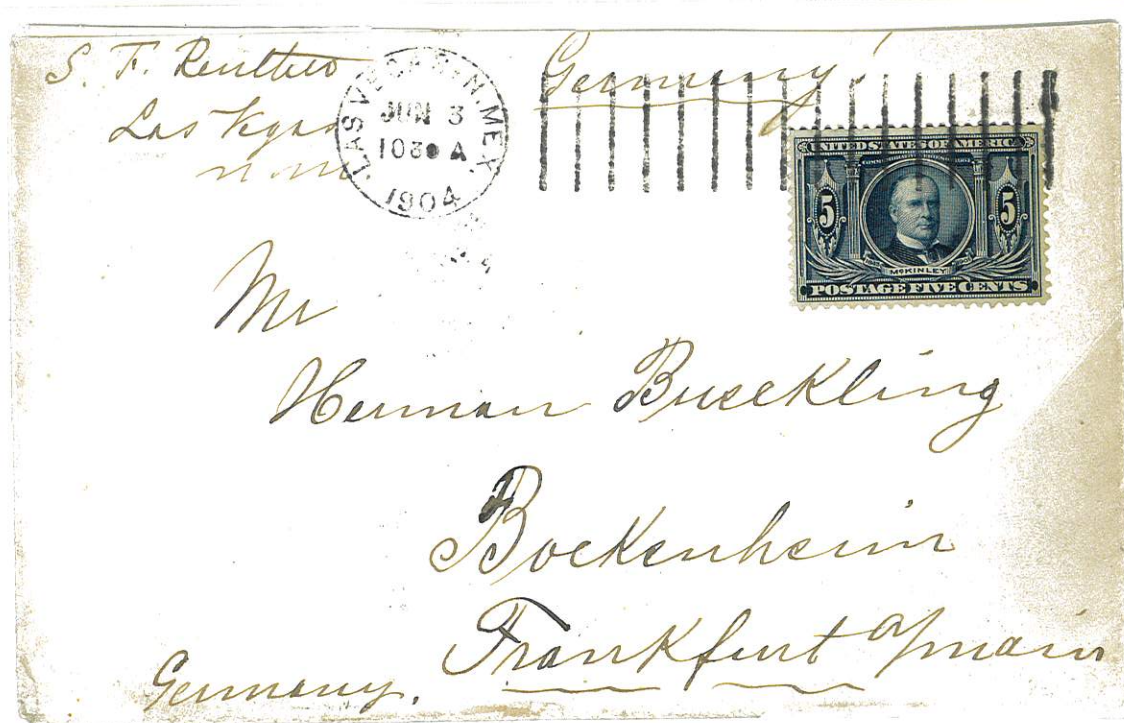 S. F.
Las Vegas
N M
Germany
LAS VEGAS · N. MEX.
JUN 3
1030 A
1904
UNITED STATES OF AMERICA
5 5
McKINLEY
POSTAGE FIVE CENTS
Mr
Herman Bueckling
Bockenheim
Frankfurt a/main
Germany.